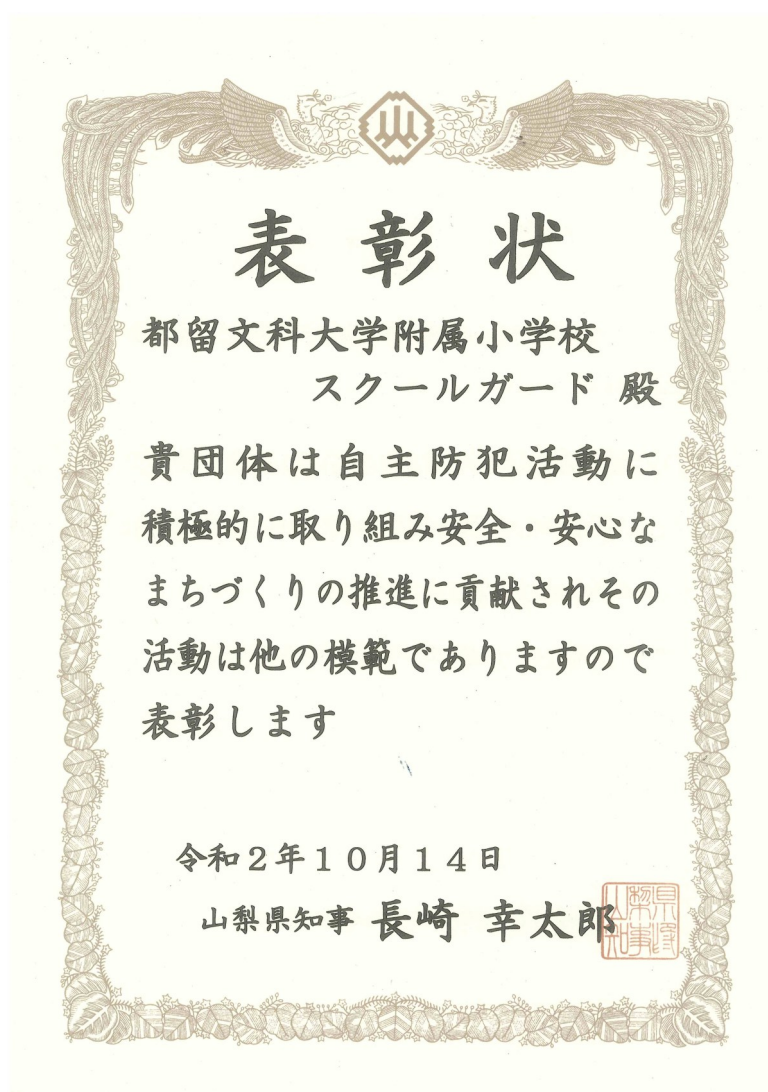 表彰状
都留文科大学附属小学校
スクールガード 殿
貴団体は自主防犯活動に
積極的に取り組み安全・安心な
まちづくりの推進に貢献されその
活動は他の模範でありますので
表彰します
令和2年10月14日
山梨県知事 長崎 幸太郎